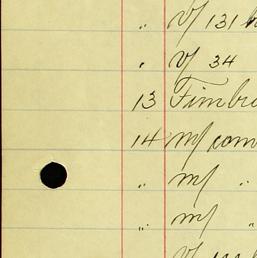 " V/ 131
" V/ 34
13 Fimbr
14 m/ com
" m/ "
" m/ "